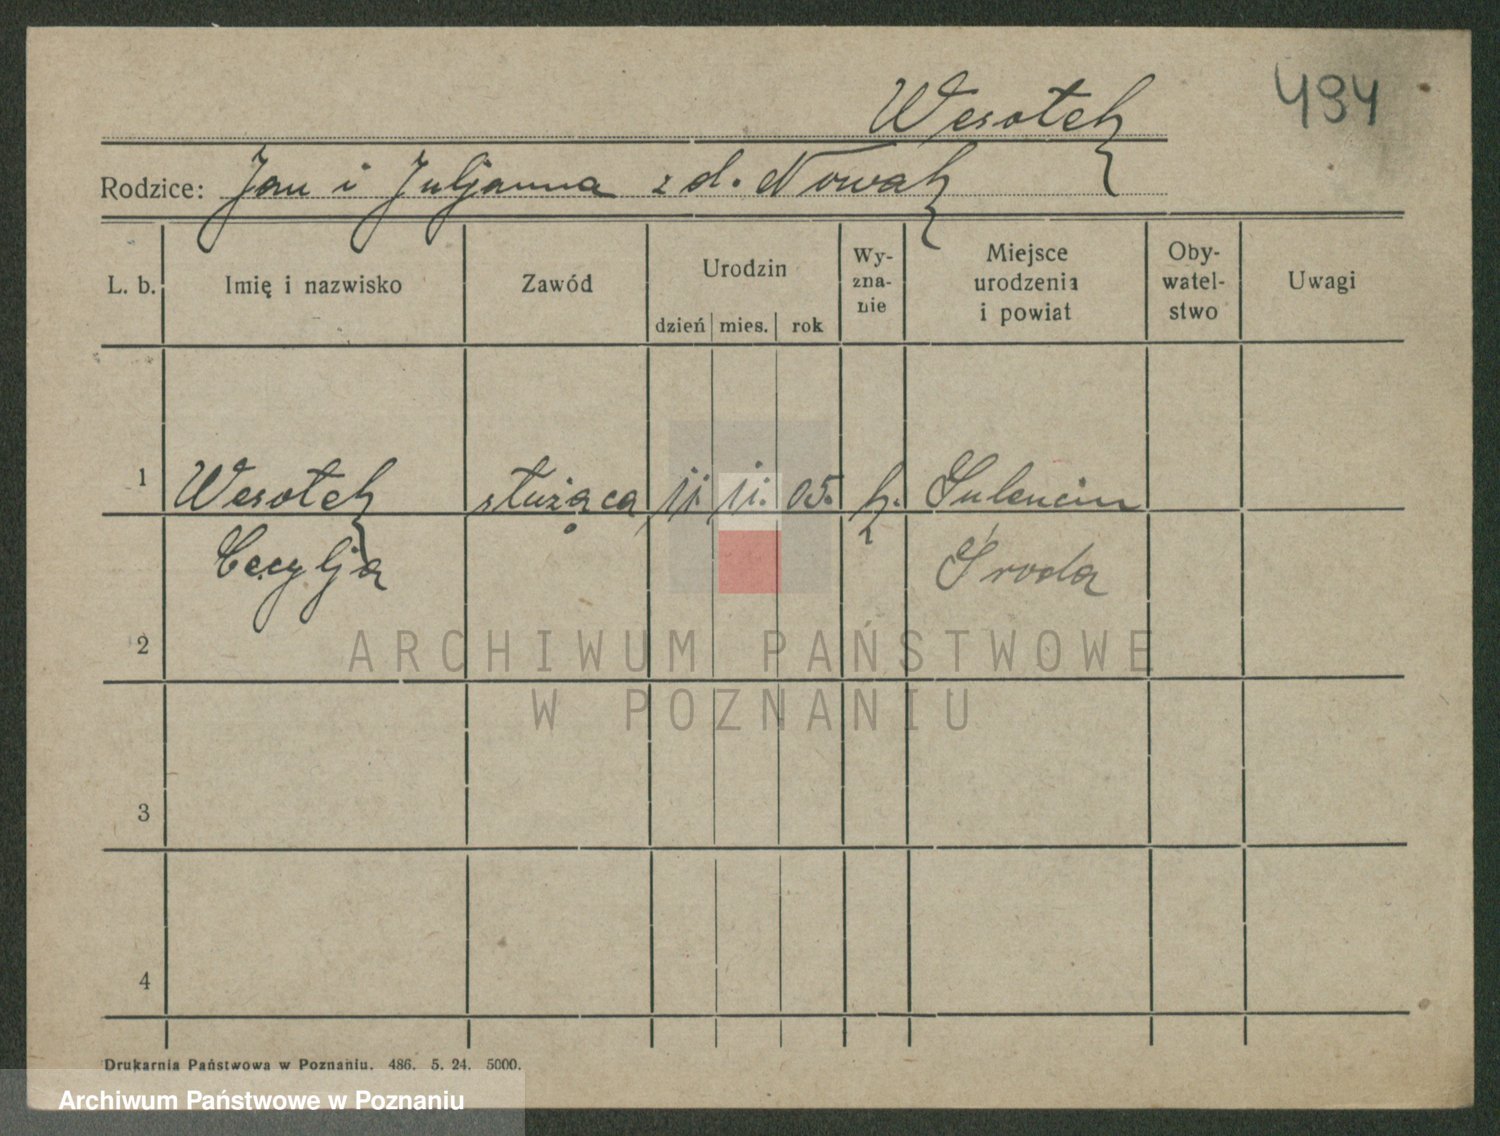 494
Wesołek
Rodzice: Jan i Juljanna z d. Nowak
L. b. Imię i nazwisko Zawód Urodzin dzień mies. rok Wy-zna-nie Miejsce urodzenia i powiat Oby-watel-stwo Uwagi
1 Wesołek służąca 11. 11. 05. k. Sulencin
Cecylja Środa
2
ARCHIWUM PAŃSTWOWE
W POZNANIU
3
4
Drukarnia Państwowa w Poznaniu. 486. 5. 24. 5000.
Archiwum Państwowe w Poznaniu